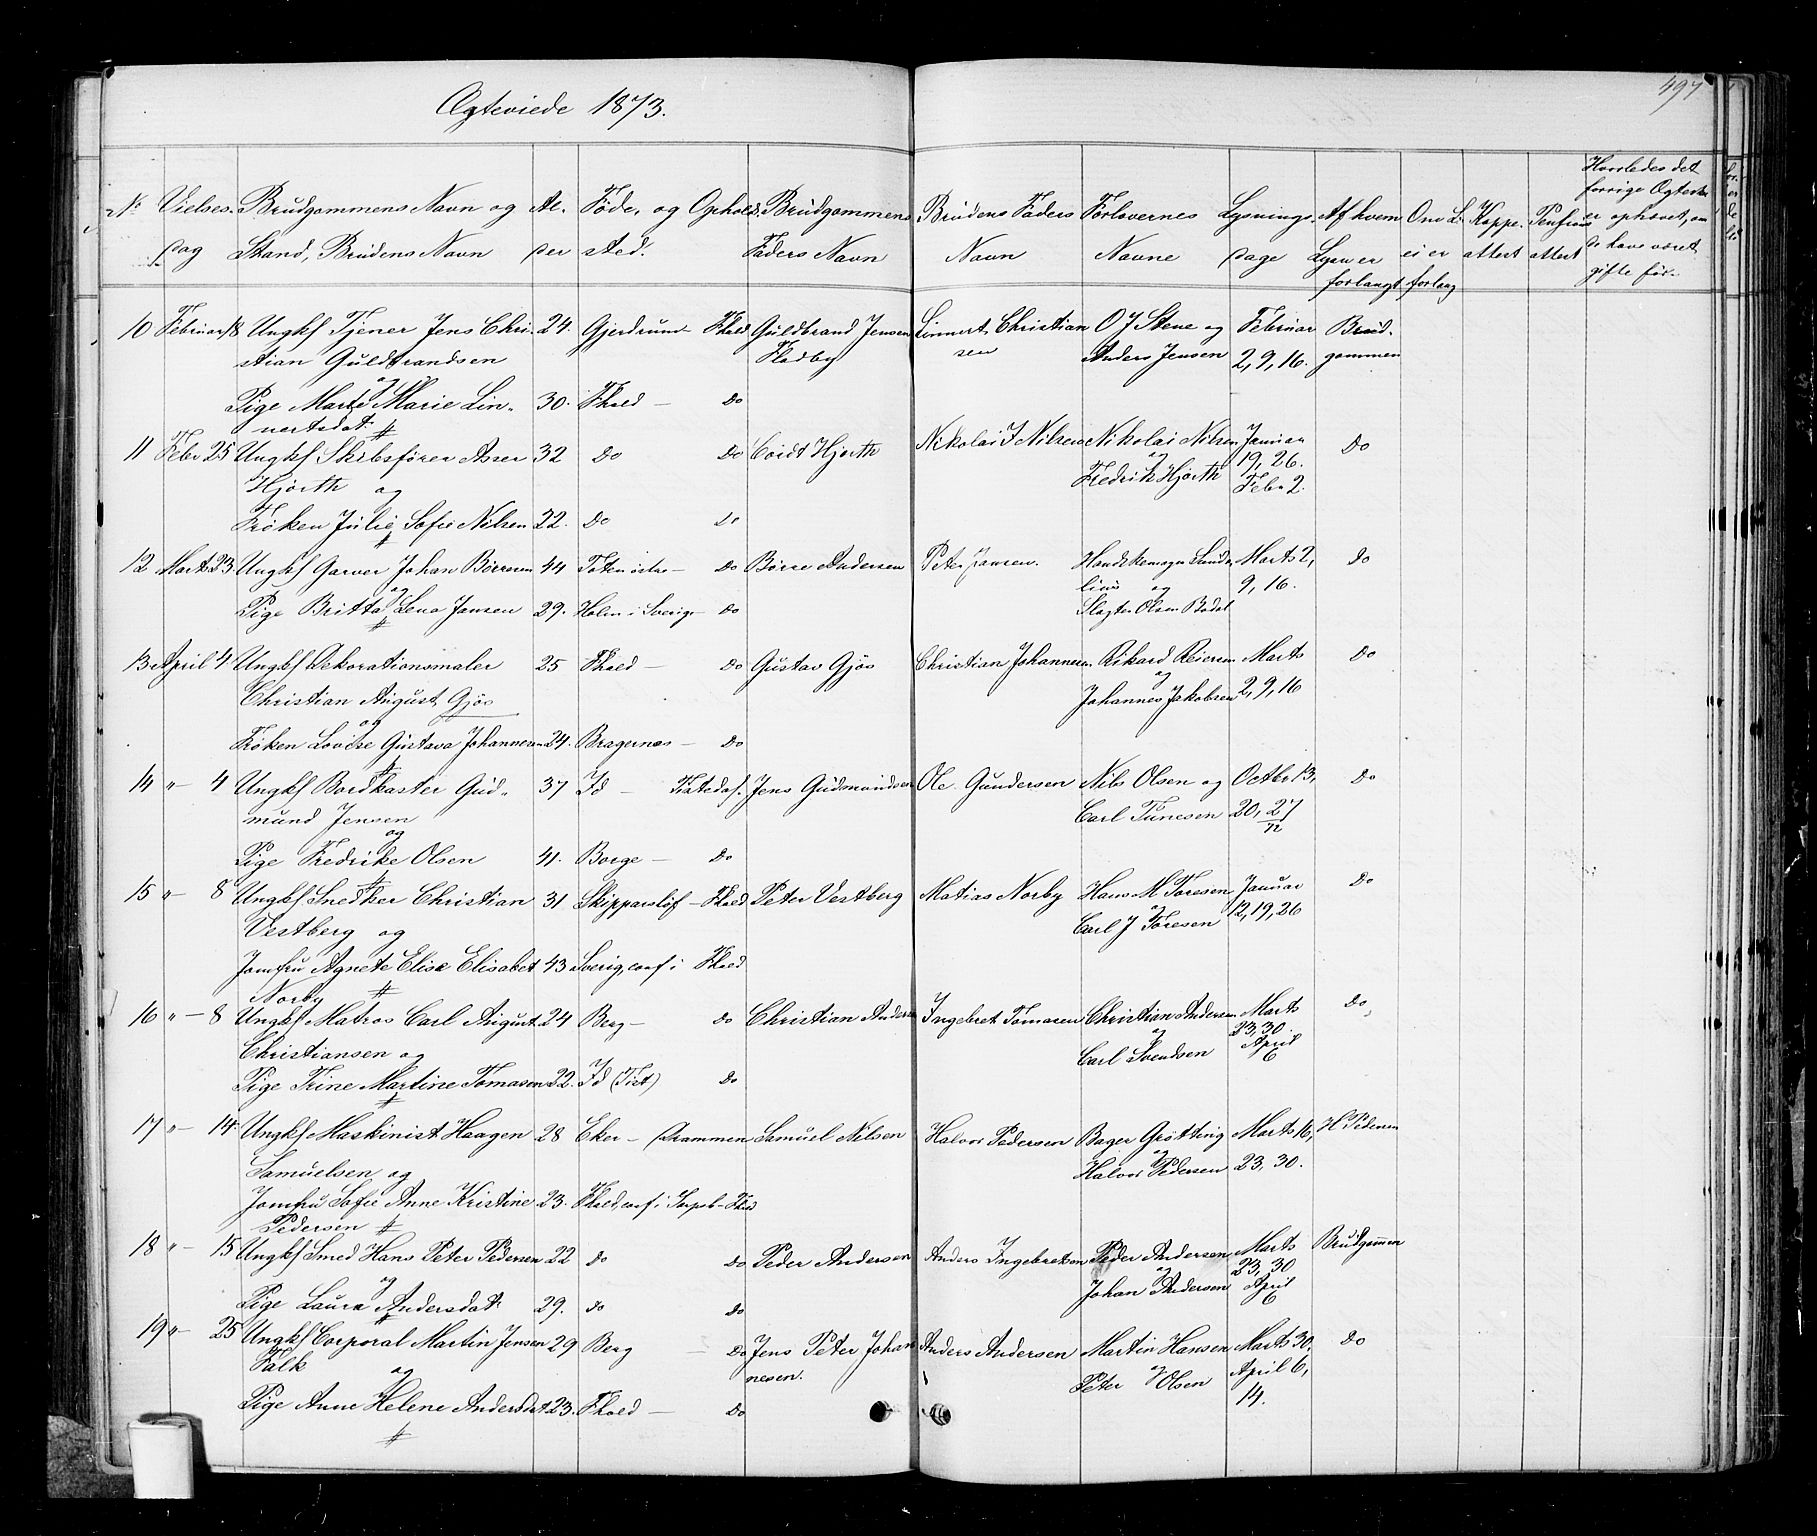 Ægteviede 1873.
497
Vielses- Brudgommens Navn og Al- Føde, og Ophold- Brudgommens Brudens Faders Forlovernes Lysnings- Af hvem Om L. Koppe- Pension Hvorledes det
dag Stand, Brudens Navn der sted. Faders Navn Navn Navne dage Lysn er ei er attest attest forrige Ægtesk
forlangt forlang er ophævet, om
de have været
gifte før
10 Februar 18 Ungkf Tjener Jens Chri- 24. Gjerdrum - Fhald Guldbrand Jensen Linnert Christian O J Stene og Februar Brud-
stian Guldbrandsen Fladby sen Anders Jensen 2, 9, 16. gommen
og
Pige Marte Marie Lin- 30. Fhald - Do
nertsdat.
11 Febr 25 Ungkf Skibsfører Asser 32 Do Do Coidt Hjorth Nikolai J Nilsen Nikolai Nilsen Januar Do
Hjorth og og 19, 26.
Fredrik Hjorth Febr 2.
Frøken Julie Sofie Nilsen 22. Do Do
12 Marts 23 Ungkf Garver Johan Børresen 44 Toten østre - Do Børre Andersen Peter Jansen. Handskemagr Sunde Marts 2, Do
og lius og 9, 16.
Pige Britta Lena Jansen 29. Holm i Sverig - Do Slagter Olsen Bødal
13 April 4 Ungkf Dekorationsmaler 25 Fhald - Do Gustav Gjøs Christian Johannesen Rikard Reiersen Marts Do
Christian August Gjøs og 2, 9, 16
og Johannes Jakobsen
Frøken Lovise Gustava Johannesen 24. Bragernæs - Do
14 " - 4 Ungkf Bordkaster Gud- 37 Id - Tistedal. Jens Gudmundsen Ole Gundersen Nils Olsen og Octbr 13, Do
mund Jensen Carl Tunesen 20, 27
og 72
Pige Fredrike Olsen 41. Borge - Do
15 " - 8 Ungkf Snedker Christian 31 Skipparslöf - Fhald Peter Vestberg Matias Norby Hans M. Toresen Januar Do
Vestberg og og 12, 19, 26
Carl J Toresen
Jomfru Agnete Elise Elisabet 43 Sverig, conf i Fhald
Norby
16 " - 8 Ungkf Matros Carl August 24 Berg - Do Christian Andersen Ingebret Tomasen Christian Andersen Marts Do
Christiansen og og 23, 30.
Carl Svendsen April
6
Pige Trine Martine Tomasen 22. Id (Tist) Do
17 " - 14 Ungkf Maskinist Haagen 28 Eker - Drammen Samuel Nilsen Halvor Pedersen Bager Grøtting Marts 16, H Pedersen
Samuelsen og og 23, 30.
Halvor Pedersen
Jomfru Sofie Anne Kristine 23. Fhald, conf i Sarpsb - Fhald
Pedersen
18 " - 15 Ungkf Smed Hans Peter Pedersen 22 Do Do Peder Andersen Anders Ingebretsen Peder Andersen Marts Brudgommen
og og 23, 30
Johan Andersen April
6
Pige Laura Andersdat. 29. Do Do
19 " - 25 Ungkf Corporal Martin Jensen 29 Berg - Do Jens Peter Johan Anders Andersen Martin Hansen Marts 30, Do
Falk og nesen. og April 6,
Peter Olsen 14.
Pige Anne Helene Andersdat 23. Fhald - Do